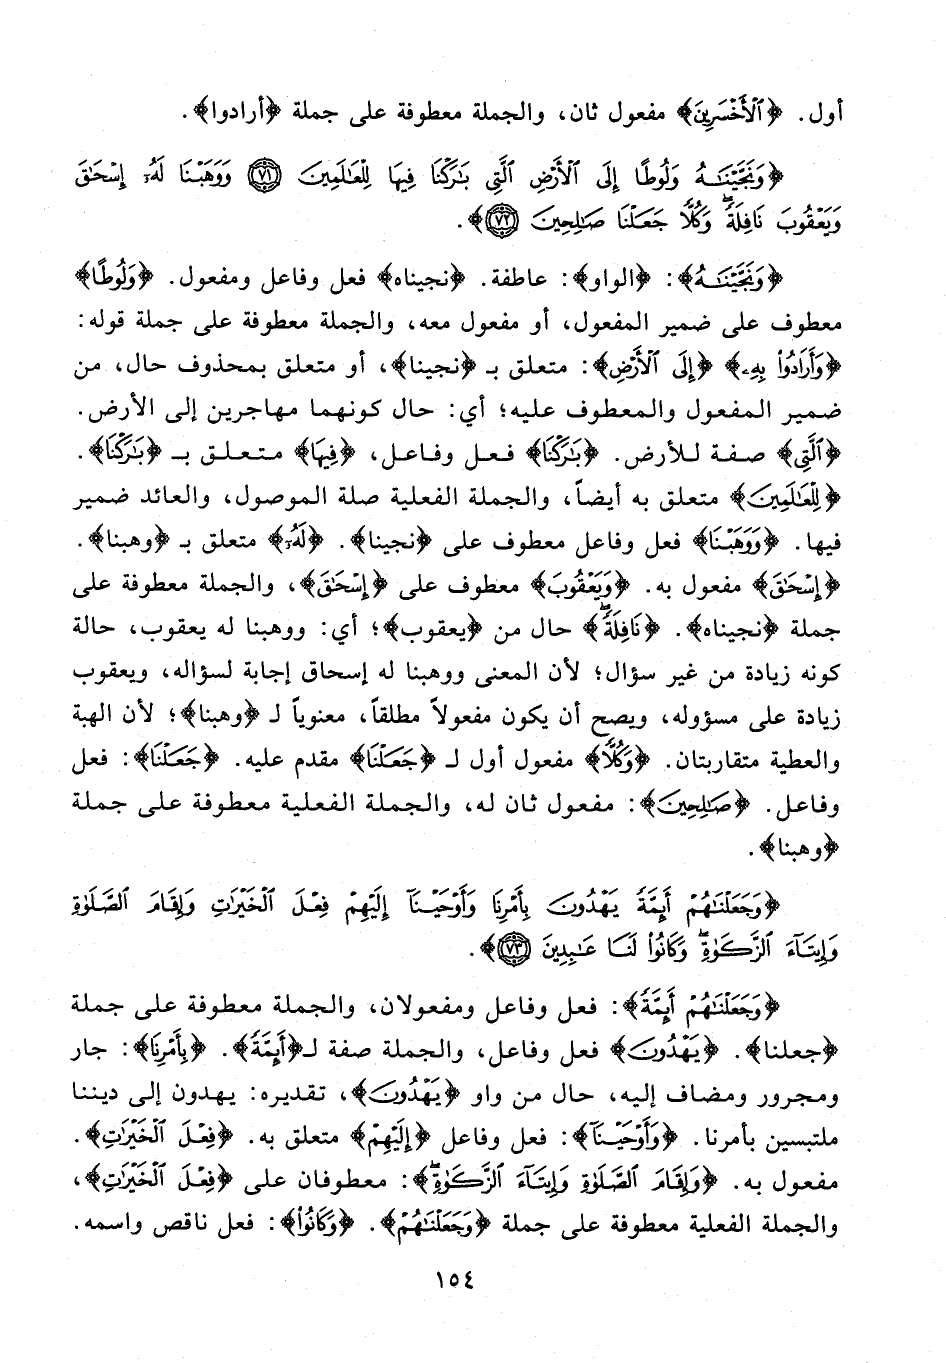 أول. ﴿ٱلْأَخْسَرِينَ﴾ مفعول ثان، والجملة معطوفة على جملة ﴿أرادوا﴾.
﴿وَنَجَّيْنَٰهُ وَلُوطًا إِلَى ٱلْأَرْضِ ٱلَّتِى بَٰرَكْنَا فِيهَا لِلْعَٰلَمِينَ ٧١ وَوَهَبْنَا لَهُۥٓ إِسْحَٰقَ
وَيَعْقُوبَ نَافِلَةً ۖ وَكُلًّا جَعَلْنَا صَٰلِحِينَ ٧٢﴾.
﴿وَنَجَّيْنَٰهُ﴾: ﴿الواو﴾: عاطفة. ﴿نجيناه﴾ فعل وفاعل ومفعول. ﴿وَلُوطًا﴾
معطوف على ضمير المفعول، أو مفعول معه، والجملة معطوفة على جملة قوله:
﴿وَأَرَادُوا۟ بِهِۦ﴾ ﴿إِلَى ٱلْأَرْضِ﴾: متعلق بـ ﴿نجينا﴾، أو متعلق بمحذوف حال، من
ضمير المفعول والمعطوف عليه؛ أي: حال كونهما مهاجرين إلى الأرض.
﴿ٱلَّتِى﴾ صفة للأرض. ﴿بَٰرَكْنَا﴾ فعل وفاعل، ﴿فِيهَا﴾ متعلق بـ ﴿بَٰرَكْنَا﴾.
﴿لِلْعَٰلَمِينَ﴾ متعلق به أيضاً، والجملة الفعلية صلة الموصول، والعائد ضمير
فيها. ﴿وَوَهَبْنَا﴾ فعل وفاعل معطوف على ﴿نجينا﴾. ﴿لَهُۥٓ﴾ متعلق بـ ﴿وهبنا﴾.
﴿إِسْحَٰقَ﴾ مفعول به. ﴿وَيَعْقُوبَ﴾ معطوف على ﴿إِسْحَٰقَ﴾، والجملة معطوفة على
جملة ﴿نجيناه﴾. ﴿نَافِلَةً ۖ﴾ حال من ﴿يعقوب﴾؛ أي: ووهبنا له يعقوب، حالة
كونه زيادة من غير سؤال؛ لأن المعنى ووهبنا له إسحاق إجابة لسؤاله، ويعقوب
زيادة على مسؤوله، ويصح أن يكون مفعولاً مطلقاً، معنوياً لـ ﴿وهبنا﴾؛ لأن الهبة
والعطية متقاربتان. ﴿وَكُلًّا﴾ مفعول أول لـ ﴿جَعَلْنَا﴾ مقدم عليه. ﴿جَعَلْنَا﴾: فعل
وفاعل. ﴿صَٰلِحِينَ﴾: مفعول ثان له، والجملة الفعلية معطوفة على جملة
﴿وهبنا﴾.
﴿وَجَعَلْنَٰهُمْ أَئِمَّةً يَهْدُونَ بِأَمْرِنَا وَأَوْحَيْنَآ إِلَيْهِمْ فِعْلَ ٱلْخَيْرَٰتِ وَإِقَامَ ٱلصَّلَوٰةِ
وَإِيتَآءَ ٱلزَّكَوٰةِ ۖ وَكَانُوا۟ لَنَا عَٰبِدِينَ ٧٣﴾.
﴿وَجَعَلْنَٰهُمْ أَئِمَّةً﴾: فعل وفاعل ومفعولان، والجملة معطوفة على جملة
﴿جعلنا﴾. ﴿يَهْدُونَ﴾ فعل وفاعل، والجملة صفة لـ﴿أَئِمَّةً﴾. ﴿بِأَمْرِنَا﴾: جار
ومجرور ومضاف إليه، حال من واو ﴿يَهْدُونَ﴾، تقديره: يهدون إلى ديننا
ملتبسين بأمرنا. ﴿وَأَوْحَيْنَآ﴾: فعل وفاعل ﴿إِلَيْهِمْ﴾ متعلق به. ﴿فِعْلَ ٱلْخَيْرَٰتِ﴾.
مفعول به. ﴿وَإِقَامَ ٱلصَّلَوٰةِ وَإِيتَآءَ ٱلزَّكَوٰةِ ۖ﴾: معطوفان على ﴿فِعْلَ ٱلْخَيْرَٰتِ﴾،
والجملة الفعلية معطوفة على جملة ﴿وَجَعَلْنَٰهُمْ﴾. ﴿وَكَانُوا۟﴾: فعل ناقص واسمه.
١٥٤